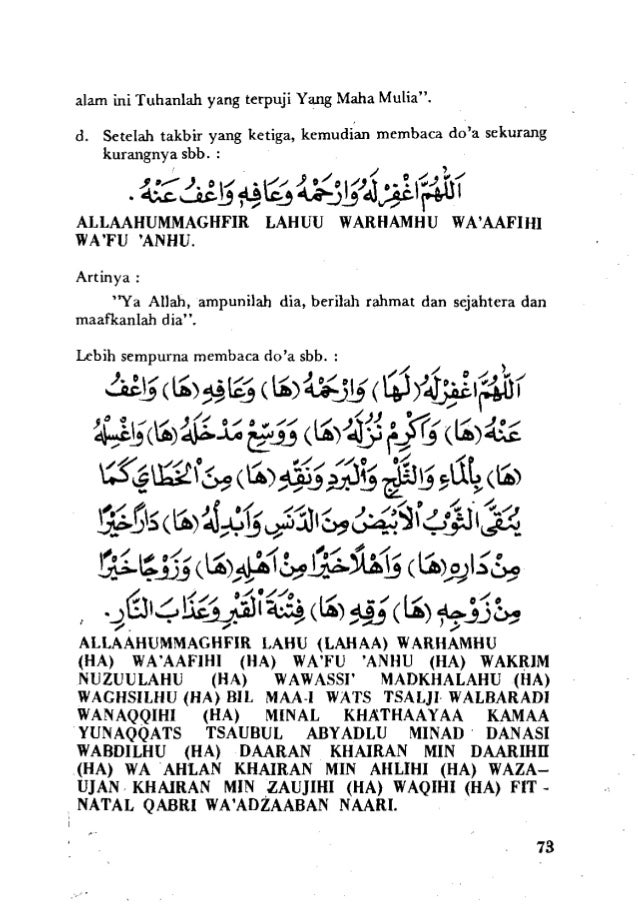 alam ini Tuhanlah yang terpuji Yang Maha Mulia”.
d. Setelah takbir yang ketiga, kemudian membaca do'a sekurang
kurangnya sbb. :
اَللّٰهُمَّ اغْفِرْ لَهُ وَارْحَمْهُ وَعَافِهِ وَاعْفُ عَنْهُ .
ALLAAHUMMAGHFIR LAHUU WARHAMHU WA'AAFIHI
WA'FU 'ANHU.
Artinya :
”Ya Allah, ampunilah dia, berilah rahmat dan sejahtera dan
maafkanlah dia”.
Lebih sempurna membaca do'a sbb. :
اَللّٰهُمَّ اغْفِرْ لَهُ (لَهَا) وَارْحَمْهُ (هَا) وَعَافِهِ (هَا) وَاعْفُ
عَنْهُ (هَا) وَاَكْرِمْ نُزُلَهُ (هَا) وَوَسِّعْ مَدْخَلَهُ (هَا) وَاغْسِلْهُ
(هَا) بِالْمَاءِ وَالثَّلْجِ وَالْبَرَدِ وَنَقِّهِ (هَا) مِنَ الْخَطَايَا كَمَا
يُنَقَّى الثَّوْبُ الْاَبْيَضُ مِنَ الدَّنَسِ وَاَبْدِلْهُ (هَا) دَارًا خَيْرًا
مِنْ دَارِهِ (هَا) وَاَهْلًا خَيْرًا مِنْ اَهْلِهِ (هَا) وَزَوْجًا خَيْرًا
مِنْ زَوْجِهِ (هَا) وَقِهِ (هَا) فِتْنَةَ الْقَبْرِ وَعَذَابَ النَّارِ .
ALLAAHUMMAGHFIR LAHU (LAHAA) WARHAMHU
(HA) WA'AAFIHI (HA) WA'FU 'ANHU (HA) WAKRIM
NUZUULAHU (HA) WAWASSI' MADKHALAHU (HA)
WAGHSILHU (HA) BIL MAA-I WATS TSALJI WALBARADI
WANAQQIHI (HA) MINAL KHATHAAYAA KAMAA
YUNAQQATS TSAUBUL ABYADLU MINAD DANASI
WABDILHU (HA) DAARAN KHAIRAN MIN DAARIHII
(HA) WA AHLAN KHAIRAN MIN AHLIHI (HA) WAZA–
UJAN KHAIRAN MIN ZAUJIHI (HA) WAQIHI (HA) FIT -
NATAL QABRI WA'ADZAABAN NAARI.
73